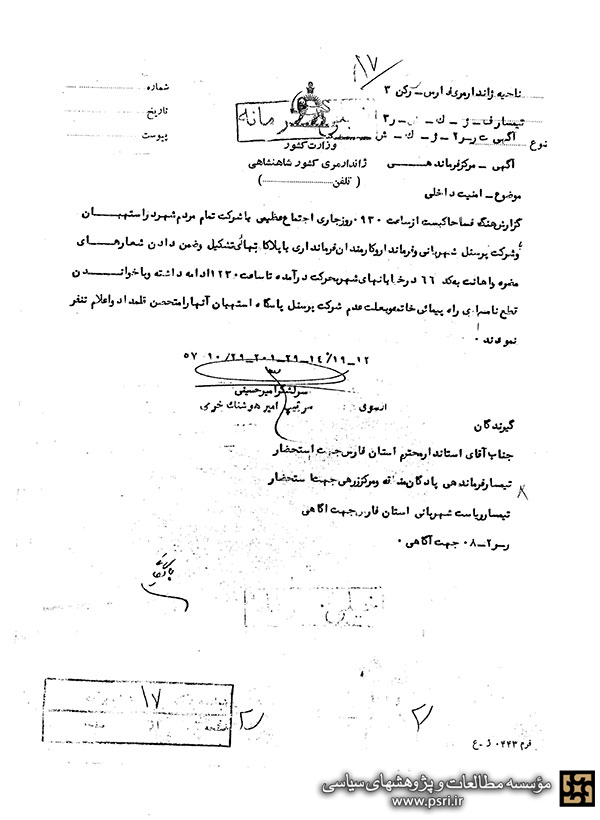 ۱۷
ناحیه ژاندارمری فارس ـ رکن ۳
شماره
تیمسار ف ـ ژ ـ ک ـ ش ـ ر۳
تاریخ
محرمانه
آگهی ت ر ـ ۲ ـ ژ ـ ک ـ ش
نوع
پیوست
وزارت کشور
آگهی ـ مرکز فرماندهی
ژاندارمری کشور شاهنشاهی
( تلفن ـ )
موضوع ـ امنیت داخلی
گزارش هنگ فسا حاکیست از ساعت ۰۹۳۰ روز جاری اجتماع عظیمی با شرکت تمام مردم شهر در استهبان
و شرکت پرسنل شهربانی و فرماندار و کارمندان فرمانداری با پلاکاتهائی تشکیل و ضمن دادن شعارهای
مضره و اهانت به کد ۶۶ در خیابانهای شهر بحرکت درآمده تا ساعت ۱۲۳۰ ادامه داشته و با خواندن
قطع نامه‌ای راه پیمائی خاتمه و بعلت عدم شرکت پرسنل پاسگاه استهبان آنها را متحصن قلمداد و اعلام تنفر
نمودند ۰
۱۲ـ۱۴/۱۹ـ۲۹ـ۲۰۱ـ۱۰/۲۹ ۵۷
سرلشگر امیرحسینی
ازسوی : سرتیپ امیر هوشنگ خرمی
گیرندگان
جناب آقای استاندار محترم استان فارس جهت استحضار
تیمسار فرماندهی پادگان منطقه و مرکز زرهی جهت استحضار
تیمسار ریاست شهربانی استان فارس جهت آگاهی
ر س ر ۲ ـ ۰۸ جهت آگاهی ۰
۱۷
صفحه از صفحه
فرم ۰۴۴۳ ژ ـ ع
مؤسسه مطالعات و پژوهشهای سیاسی
www.psri.ir